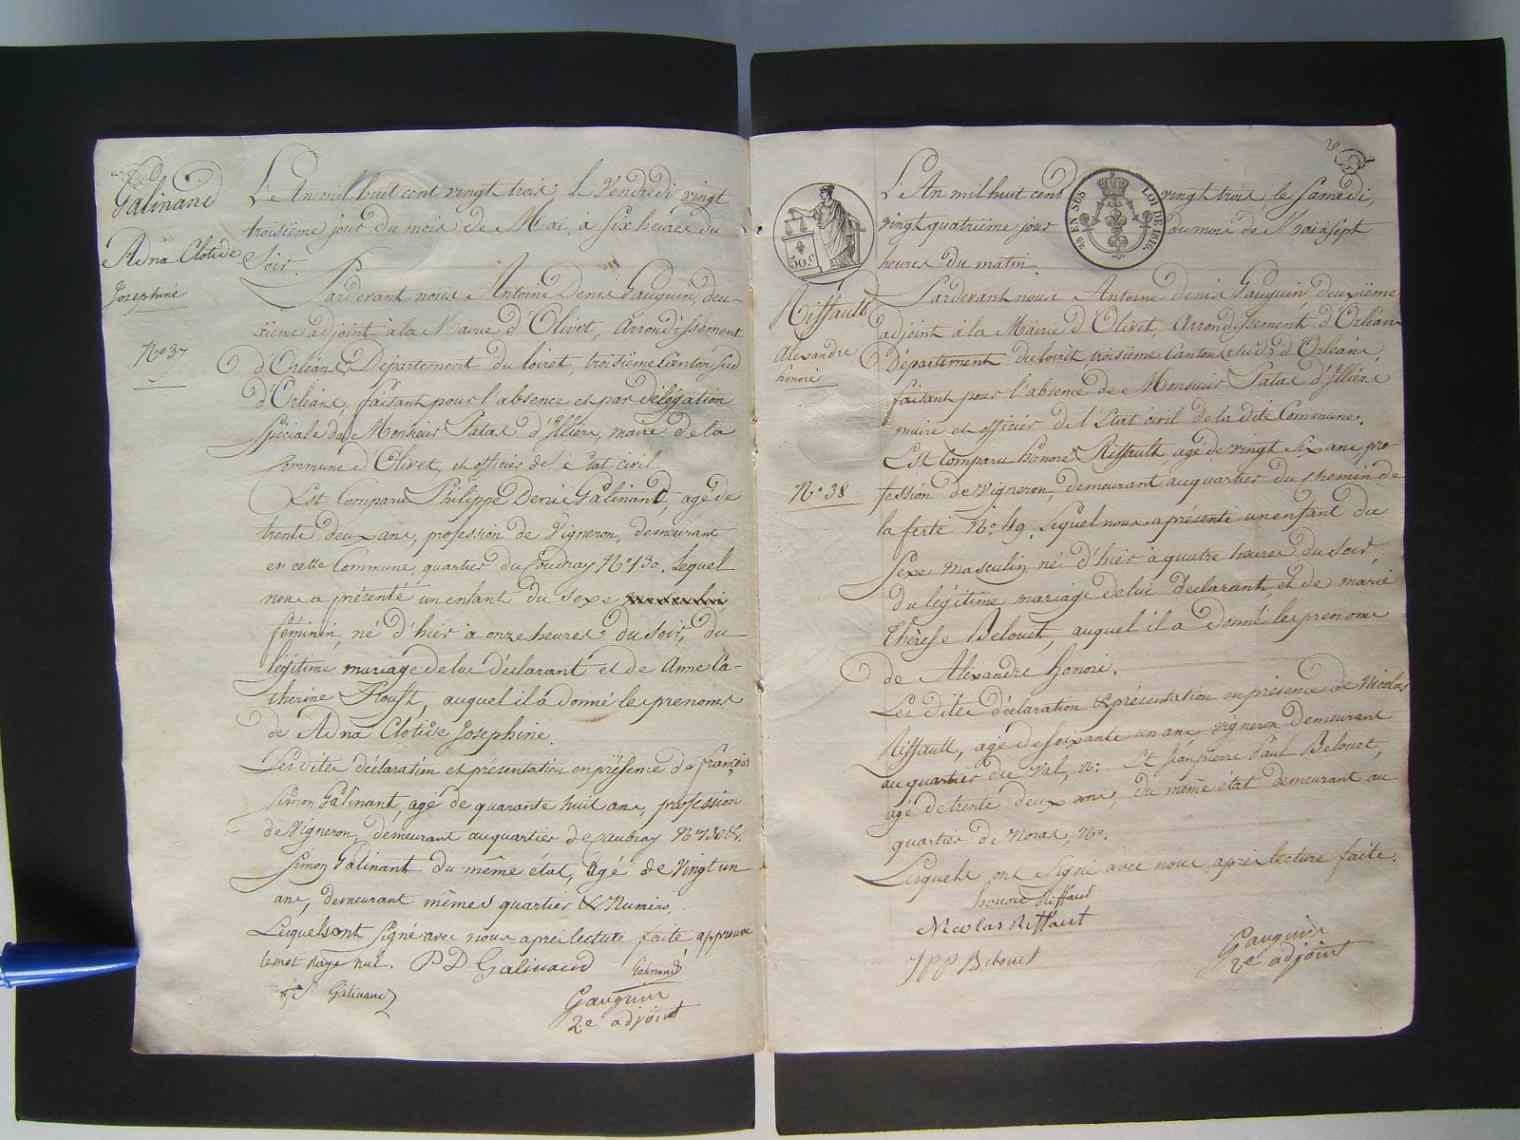 Galinand
Adna Clotide
Josephine
N.o 37
L'An mil huit cent vingt trois, le Vendredi vingt
troisième jour du mois de Mai, à six heures du
Soir.
Pardevant nous Antoine Denis Gauguin, deu-
xième adjoint à la Mairie d'Olivet, Arrondissement
d'Orléans, Département du loiret, troisième Canton Sud
d'Orléans, faisant pour l'absence et par délégation
Spéciale de Monsieur Patas d'Illiers, maire de la
Commune d'Olivet, et officier de l'état civil.
Est Comparu Philippe Denis Galinand, agé de
trente deux ans, profession de Vigneron, demeurant
en cette Commune, quartier du Coudray N.o 130. Lequel
nous a présenté un enfant du Sexe
féminin, né d'hier à onze heures du soir, du
légitime mariage de lui déclarant et de Anne Ca-
therine, auquel il a donné les prenoms
de Adna Clotide Josephine.
Les dites déclaration et présentation en présence de françois
Simon Galinant, agé de quarante huit ans, profession
de Vigneron, demeurant au quartier de N.o 130 Et
Simon Galinant du même état, agé de Vingt un
ans, demeurant mêmes quartier & Numéro.
Lesquels ont Signé avec nous après lecture faite approuvé
le mot rayé nul. P D Galinand Galinand
f S Galinand
Gauguin
2e adjoint
50 c
25 EN SUS LOI DE 1816
Riffault
Alexandre
honoré
N.o 38
L'An mil huit cent vingt trois, le Samedi,
vingt quatrième jour du mois de Mai à sept
heures du matin.
Pardevant nous Antoine denis Gauguin, deuxième
adjoint à la Mairie d'Olivet, Arrondissement d'Orléans
Département du loiret, troisième Canton Sud d'Orléans,
faisant pour l'absence de Monsieur Patas d'Illiers
maire et officier de l'état civil de la dite Commune.
Est Comparu honoré Riffault agé de vingt Six ans pro-
fession de Vigneron, demeurant au quartier du Chemin de
la ferté N.o 49. Lequel nous a présenté un enfant du
Sexe masculin né d'hier à quatre heures du Soir
du légitime mariage de lui déclarant, et de marie
thérèse Belouet, auquel il a donné les prenoms
de Alexandre honoré.
Les dites déclaration & présentation en présence de Nicolas
Riffault, agé de soixante un ans vigneron demeurant
au quartier du Val, N.o Et Jean pierre Paul Belouet,
agé de trente deux ans, du même état demeurant au
quartier de Noras, N.o
Lesquels ont Signé avec nous après lecture faite.
honoré Riffaut
Nicolas Riffaut
J P P Belouet
Gauguin
2e adjoint